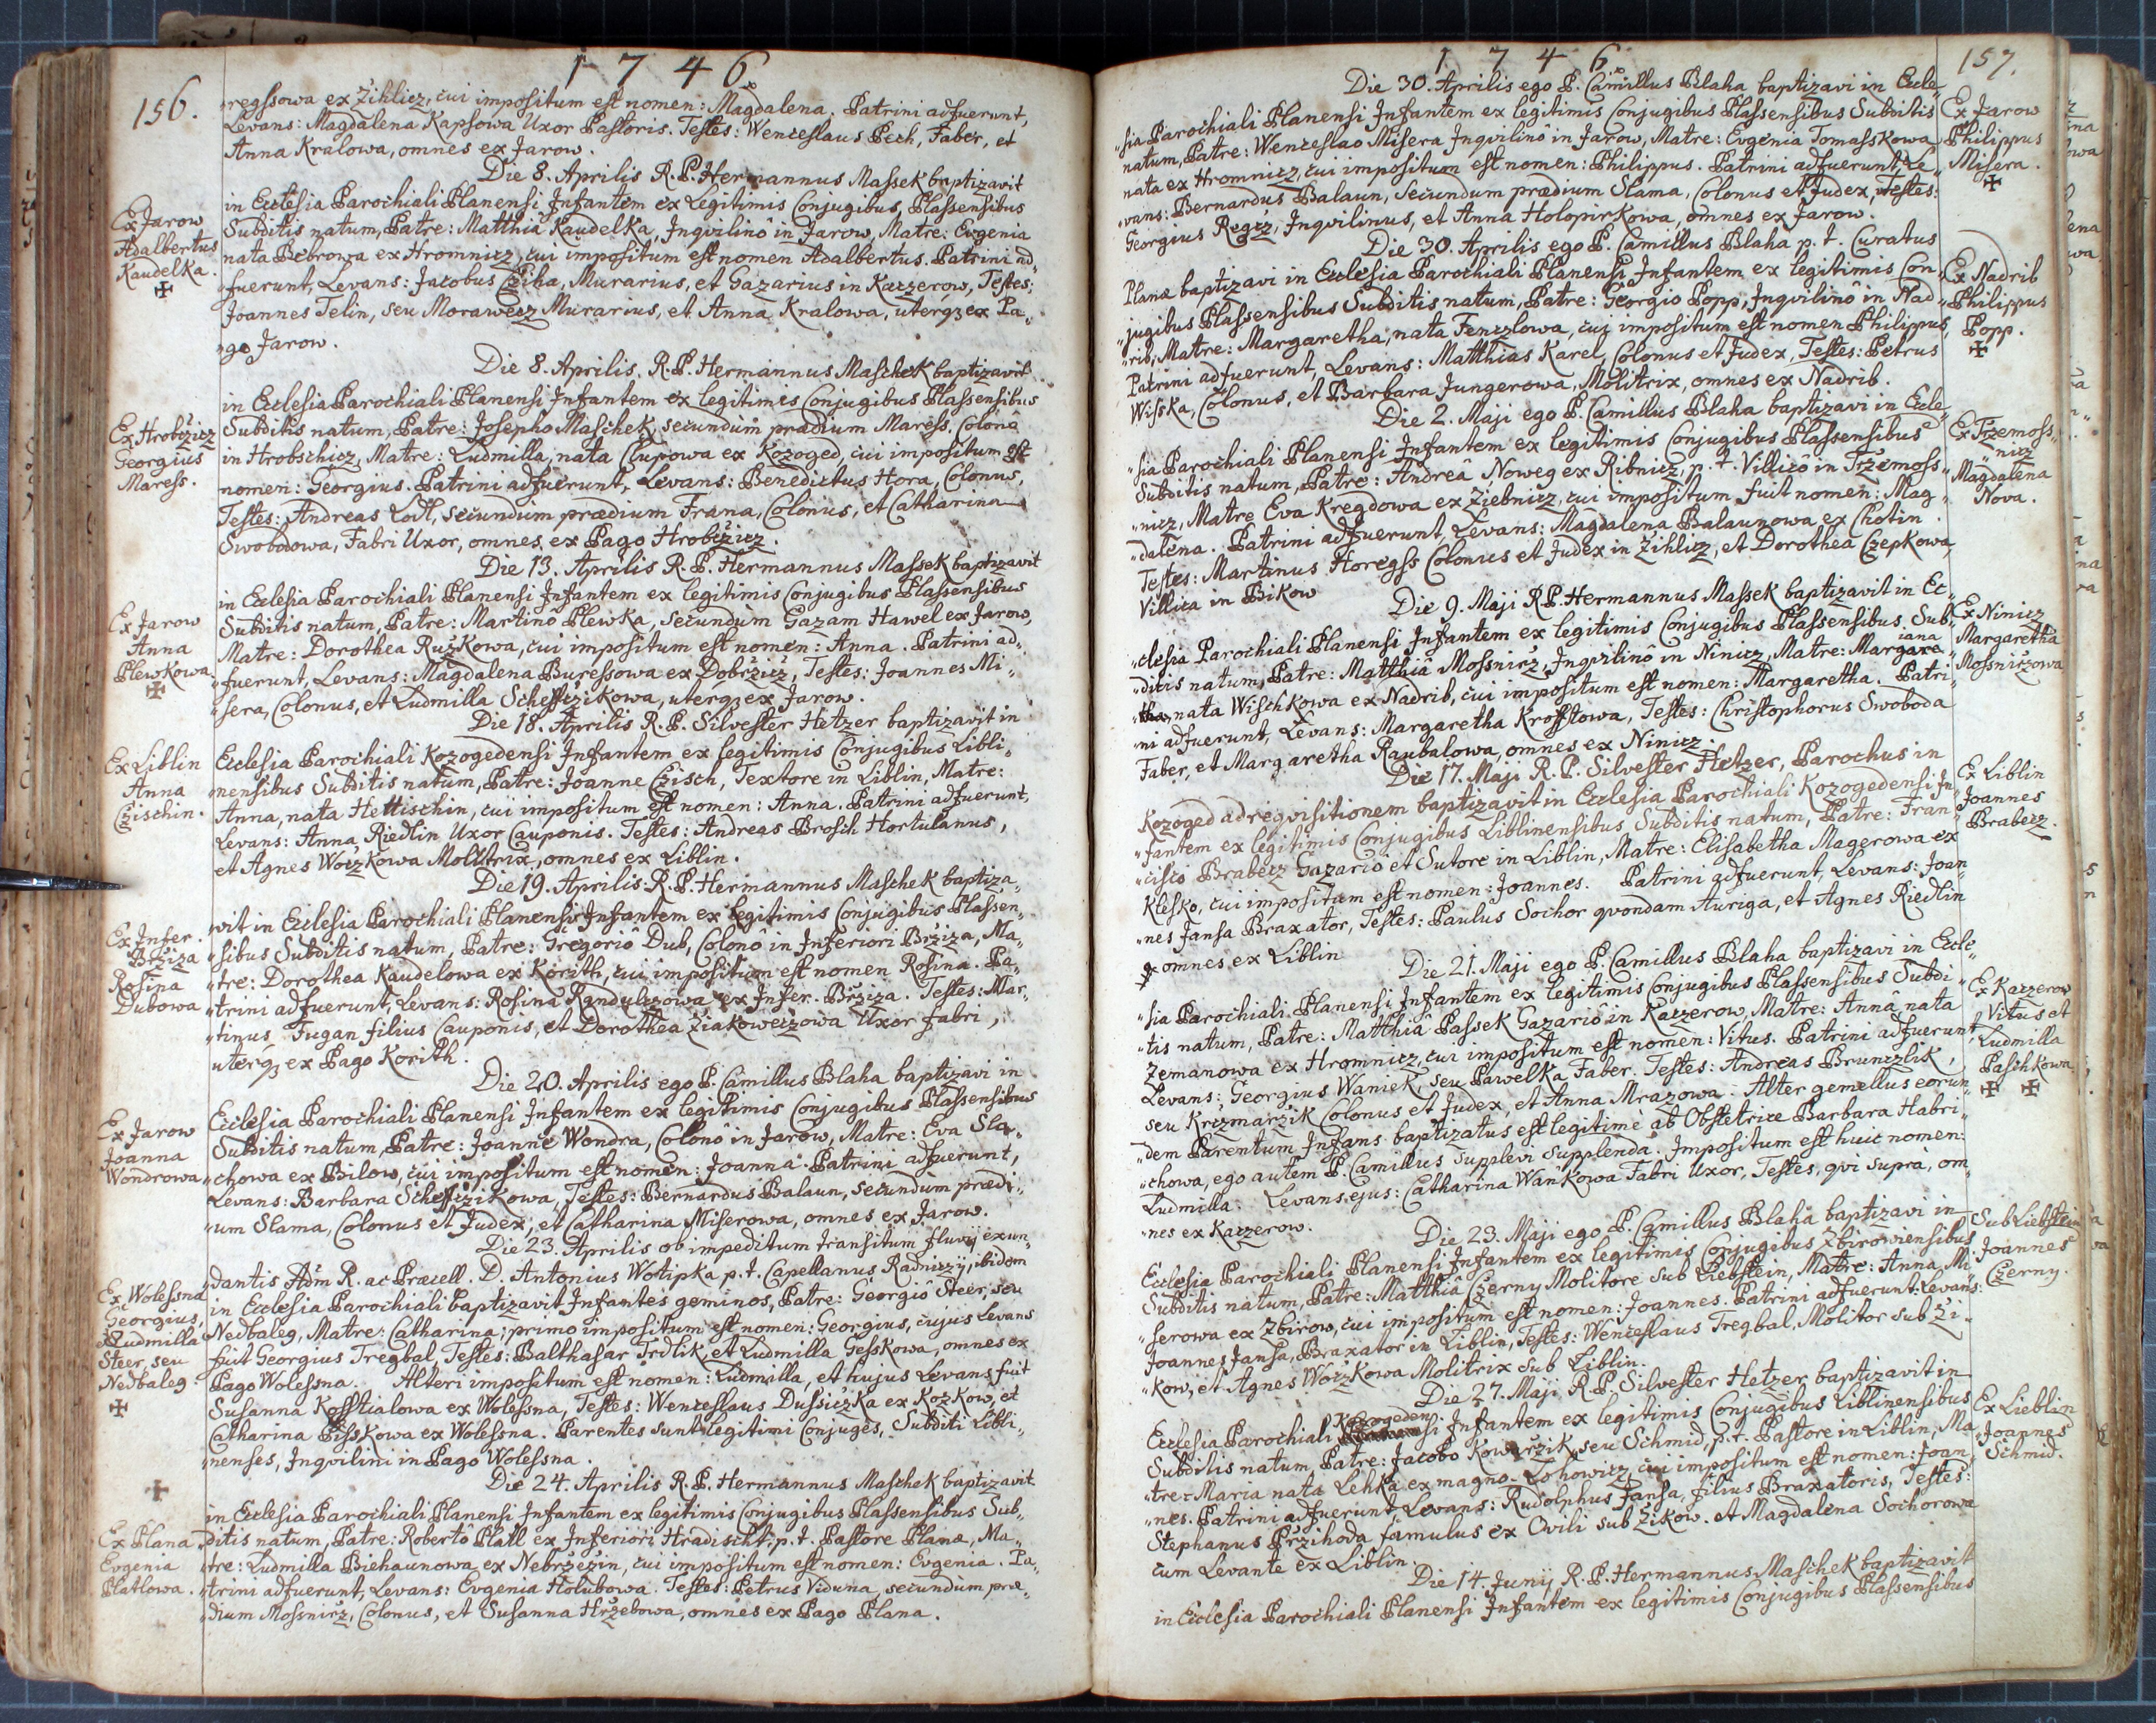 1746
156.
„regssowa ex Žihlicz, cui impositum est nomen: Magdalena. Patrini adfuerunt,
Levans: Magdalena Kapsowa Uxor Pastoris. Testes: Wenceslaus Pech, Faber, et
Anna Kralowa, omnes ex Jarow.
Die 8. Aprilis R. P. Hermannus Massek baptizavit
in Ecclesia Parochiali Planensi Infantem ex Legitimis Conjugibus Plassensibus
Ex Jarow
Adalbertus
Kaudelka.
✠
Subditis natum, Patre: Matthia Kaudelka, Inqvilinô in Jarow, Matre: Evgenia
nata Bebrowa ex Hromnicz, cui impositum est nomen Adalbertus. Patrini ad„
„fuerunt, Levans: Jacobus Cziha, Murarius, et Gazarius in Kaczerow, Testes:
Joannes Telin, seu Morawecz Murarius, et Anna Kralowa, uterqȝ ex Pa„
„go Jarow.
Die 8. Aprilis. R. P. Hermannus Maschek baptizavit
in Ecclesia Parochiali Planensi Infantem ex legitimis Conjugibus Plassensibus
Ex Hrobczicz
Georgius
Maress.
Subditis natum, Patre: Josepho Maschek, secundum prædium Maress. Colonô
in Hrobschicz, Matre: Ludmilla, nata Clupowa ex Kozoged, cui impositum est
nomen: Georgius. Patrini adfuerunt, Levans: Benedictus Hora, Colonus,
Testes: Andreas Lodl, secundum prædium Frana, Colonus, et Catharina
Swobodowa, Fabri Uxor, omnes ex Pago Hrobczicz.
Die 13. Aprilis R. P. Hermannus Massek baptizavit
in Ecclesia Parochiali Planensi Infantem ex legitimis Conjugibus Plassensibus
Ex Jarow
Anna
Plewkowa
✠
Subditis natum, Patre: Martinô Plewka, secundum Gazam Hawel ex Jarow,
Matre: Dorothea Ružkowa, cui impositum est nomen: Anna. Patrini ad„
„fuerunt, Levans: Magdalena Buressowa ex Dobržicz, Testes: Joannes Mi„
„sera, Colonus, et Ludmilla Scheffczikowa, uterqȝ ex Jarow.
Die 18. Aprilis R. P. Silvester Hetzer baptizavit in
Ex Liblin
Anna
Czischin.
Ecclesia Parochiali Kozogedensi Infantem ex legitimis Conjugibus Libli„
„nensibus Subditis natum, Patre: Joanne Czisch, Textore in Liblin, Matre:
Anna, nata Hettischin, cui impositum est nomen: Anna. Patrini adfuerunt,
Levans: Anna Riedlin Uxor Cauponis. Testes: Andreas Brosch Hortulanus,
et Agnes Woczkowa Molitrix, omnes ex Liblin.
Die 19. Aprilis R. P. Hermannus Maschek baptiza„
„vit in Ecclesia Parochiali Planensi Infantem ex legitimis Conjugibus Plassen„
Ex Infer.
Bržiza
Rosina
Dubowa
„sibus Subditis natum, Patre: Gregoriô Dub, Colonô in Inferiori Bržiza, Ma„
„tre: Dorothea Kaudelowa ex Korith, cui impositum est nomen Rosina. Pa„
„trini adfuerunt, Levans: Rosina Randulczowa ex Infer. Bržiza. Testes: Mar„
„tinus Fugan filius Cauponis, et Dorothea Žiakoweczowa Uxor Fabri,
uterqȝ ex Pago Korith.
Die 20. Aprilis ego P. Camillus Blaha baptizavi in
Ecclesia Parochiali Planensi Infantem ex legitimis Conjugibus Plassensibus
Ex Jarow
Joanna
Wondrowa
Subditis natum, Patre: Joanne Wondra, Colonô in Jarow, Matre: Eva Sla„
„chowa ex Bilow, cui impositum est nomen: Joanna. Patrini adfuerunt,
Levans: Barbara Scheffczikowa, Testes: Bernardus Balaun, secundum prædi„
„um Slama, Colonus et Judex, et Catharina Miserowa, omnes ex Jarow.
Die 23. Aprilis ob impeditum transitum fluvij exun„
Ex Wolessna
Georgius,
et Ludmilla
Steer, seu
Nedbaleg
✠
„dantis Adm R. ac Præcell. D. Antonius Wotipka p. t. Capellanus Radniczij, ibidem
in Ecclesia Parochiali baptizavit Infantes geminos, Patre: Georgiô Steer, seu
Nedbaleg, Matre: Catharina; primo impositum est nomen: Georgius, cujus Levans
fuit Georgius Tregbal, Testes: Balthasar Trdlik, et Ludmilla Gesskowa, omnes ex
Pago Wolessna. Alteri impositum est nomen: Ludmilla, et hujus Levans fuit
Susanna Kosstialowa ex Wolessna, Testes: Wenceslaus Dussiczka ex Kozkow, et
Catharina Pisskowa ex Wolessna. Parentes sunt legitimi Conjuges, Subditi Libli„
„nenses, Inqvilini in Pago Wolessna.
Die 24. Aprilis R. P. Hermannus Maschek baptizavit
✠
in Ecclesia Parochiali Planensi Infantem ex legitimis Conjugibus Plassensibus Sub„
Ex Plana
Evgenia
Platlowa.
„ditis natum, Patre: Robertô Platl ex Inferiori Hradischt, p. t. Pastore Planæ, Ma„
„tre: Ludmilla Biehaunowa ex Nebržezin, cui impositum est nomen: Evgenia. Pa„
„trini adfuerunt, Levans: Evgenia Holubowa. Testes: Petrus Viduna, secundum præ„
„dium Mossnicz, Colonus, et Susanna Hržebowa, omnes ex Pago Plana.
1746
157.
Die 30. Aprilis ego P. Camillus Blaha baptizavi in Eccle„
„sia Parochiali Planensi Infantem ex legitimis Conjugibus Plassensibus Subditis
Ex Jarow
Philippus
Misera.
✠
natum, Patre: Wenceslao Misera Inqvilinô in Jarow, Matre: Evgenia Tomasskowa
nata ex Hromnicz, cui impositum est nomen: Philippus. Patrini adfuerunt, Le„
„vans: Bernardus Balaun, secundum prædium Slama, Colonus et Judex, Testes:
Georgius Regcz, Inqvilinus, et Anna Holopirkowa, omnes ex Jarow.
Die 30. Aprilis ego P. Camillus Blaha p. t. Curatus
Planæ baptizavi in Ecclesia Parochiali Planensi Infantem ex legitimis Con„
Ex Nadrib
Philippus
Popp.
✠
„jugibus Plassensibus Subditis natum, Patre: Georgio Popp, Inqvilinô in Nad„
„rib, Matre: Margaretha, nata Fenczlowa, cuj impositum est nomen Philippus,
Patrini adfuerunt, Levans: Matthias Karel, Colonus et Judex, Testes: Petrus
Wisska, Colonus, et Barbara Jungerowa, Molitrix, omnes ex Nadrib.
Die 2. Maji ego P. Camillus Blaha baptizavi in Eccle„
Ex Tržemoss„
„nicz
Magdalena
Nova.
„sia Parochiali Planensi Infantem ex legitimis Conjugibus Plassensibus
Subditis natum, Patre: Andrea Noweg ex Ribnicz, p. t. Villicô in Tržemoss„
„nicz, Matre Eva Kregdowa ex Žiebnicz, cui impositum fuit nomen: Mag„
„dalena. Patrini adfuerunt, Levans: Magdalena Balaunowa ex Chotin.
Testes: Martinus Horegss Colonus et Judex in Žihlicz, et Dorothea Czepkowa,
Villica in Bikow
Die 9. Maji R. P. Hermannus Massek baptizavit in Ec„
Ex Ninicz
Margaretha
Mossniczowa
„clesia Parochiali Planensi Infantem ex legitimis Conjugibus Plassensibus Sub„
„ditis natum, Patre: Matthiâ Mossnicz, Inqvilinô in Ninicz, Matre: Margare„
iana
„tha, nata Wischkowa ex Nadrib, cui impositum est nomen: Margaretha. Patri„
„ni adfuerunt, Levans: Margaretha Krofftowa, Testes: Christophorus Swoboda
Faber, et Margaretha Raubalowa, omnes ex Ninicz.
Die 17. Maji R. P. Silvester Hetzer, Parochus in
Ex Liblin
Joannes
Brabecz.
Kozoged ad reqvisitionem baptizavit in Ecclesia Parochiali Kozogedensi In„
„fantem ex legitimis Conjugibus Liblinensibus Subditis natum, Patre: Fran„
„cisco Brabecz Gazariô et Sutore in Liblin, Matre: Elisabetha Magerowa ex
Klesko, cui impositum est nomen: Joannes. Patrini adfuerunt, Levans: Joan„
„nes Jansa Braxator, Testes: Paulus Sochor qvondam Auriga, et Agnes Riedlin
omnes ex Liblin
Die 21. Maji ego P. Camillus Blaha baptizavi in Eccle„
Ex Kaczerow
Vitus et
Ludmilla
Paschkowa.
✠ ✠
„sia Parochiali Planensi Infantem ex legitimis Conjugibus Plassensibus Subdi„
„tis natum, Patre: Matthiâ Passek Gazariô in Kaczerow, Matre: Anna nata
Zemanowa ex Hromnicz, cui impositum est nomen: Vitus. Patrini adfuerunt,
Levans: Georgius Waniek, seu Pawelka Faber. Testes: Andreas Brunczlik,
seu Krczmarzik Colonus et Judex, et Anna Mrazowa. Alter gemellus eorun„
„dem Parentum Infans baptizatus est legitimè ab Obstetrice Barbara Habri„
„chowa, ego autem P. Camillus supplevi supplenda. Impositum est huic nomen:
Ludmilla. Levans ejus: Catharina Wankowa Fabri Uxor, Testes, qvi suprà, om„
„nes ex Kaczerow.
Die 23. Maji ego P. Camillus Blaha baptizavi in
Sub Liebstein
Joannes
Czerny.
Ecclesia Parochiali Planensi Infantem ex legitimis Conjugibus Zbirowiensibus
Subditis natum, Patre: Matthiâ Czerny Molitore sub Liebstein, Matre: Anna, Mi„
„serowa ex Zbirow, cui impositum est nomen: Joannes. Patrini adfuerunt: Levans:
Joannes Jansa, Braxator in Liblin, Testes: Wenceslaus Tregbal, Molitor sub Ži„
„kow, et Agnes Woczkowa Molitrix sub Liblin.
Die 27. Maji R. P. Silvester Hetzer baptizavit in
Ex Lieblin
Joannes
Schmid.
Ecclesia Parochiali Kozogedensi Infantem ex legitimis Conjugibus Liblinensibus
Subditis natum, Patre: Jacobo Kowaržik, seu Schmid, p. t. Pastore in Liblin, Ma„
„tre: Maria nata Lehka ex magno-Lohowicz, cui impositum est nomen: Joan„
„nes. Patrini adfuerunt, Levans: Rudolphus Jansa, filius Braxatoris, Testes:
Stephanus Pržihoda famulus ex Ovili sub Žikow. et Magdalena Sochorowa
cum Levante ex Liblin.
Die 14. Junij R. P. Hermannus Maschek baptizavit
in Ecclesia Parochiali Planensi Infantem ex legitimis Conjugibus Plassensibus